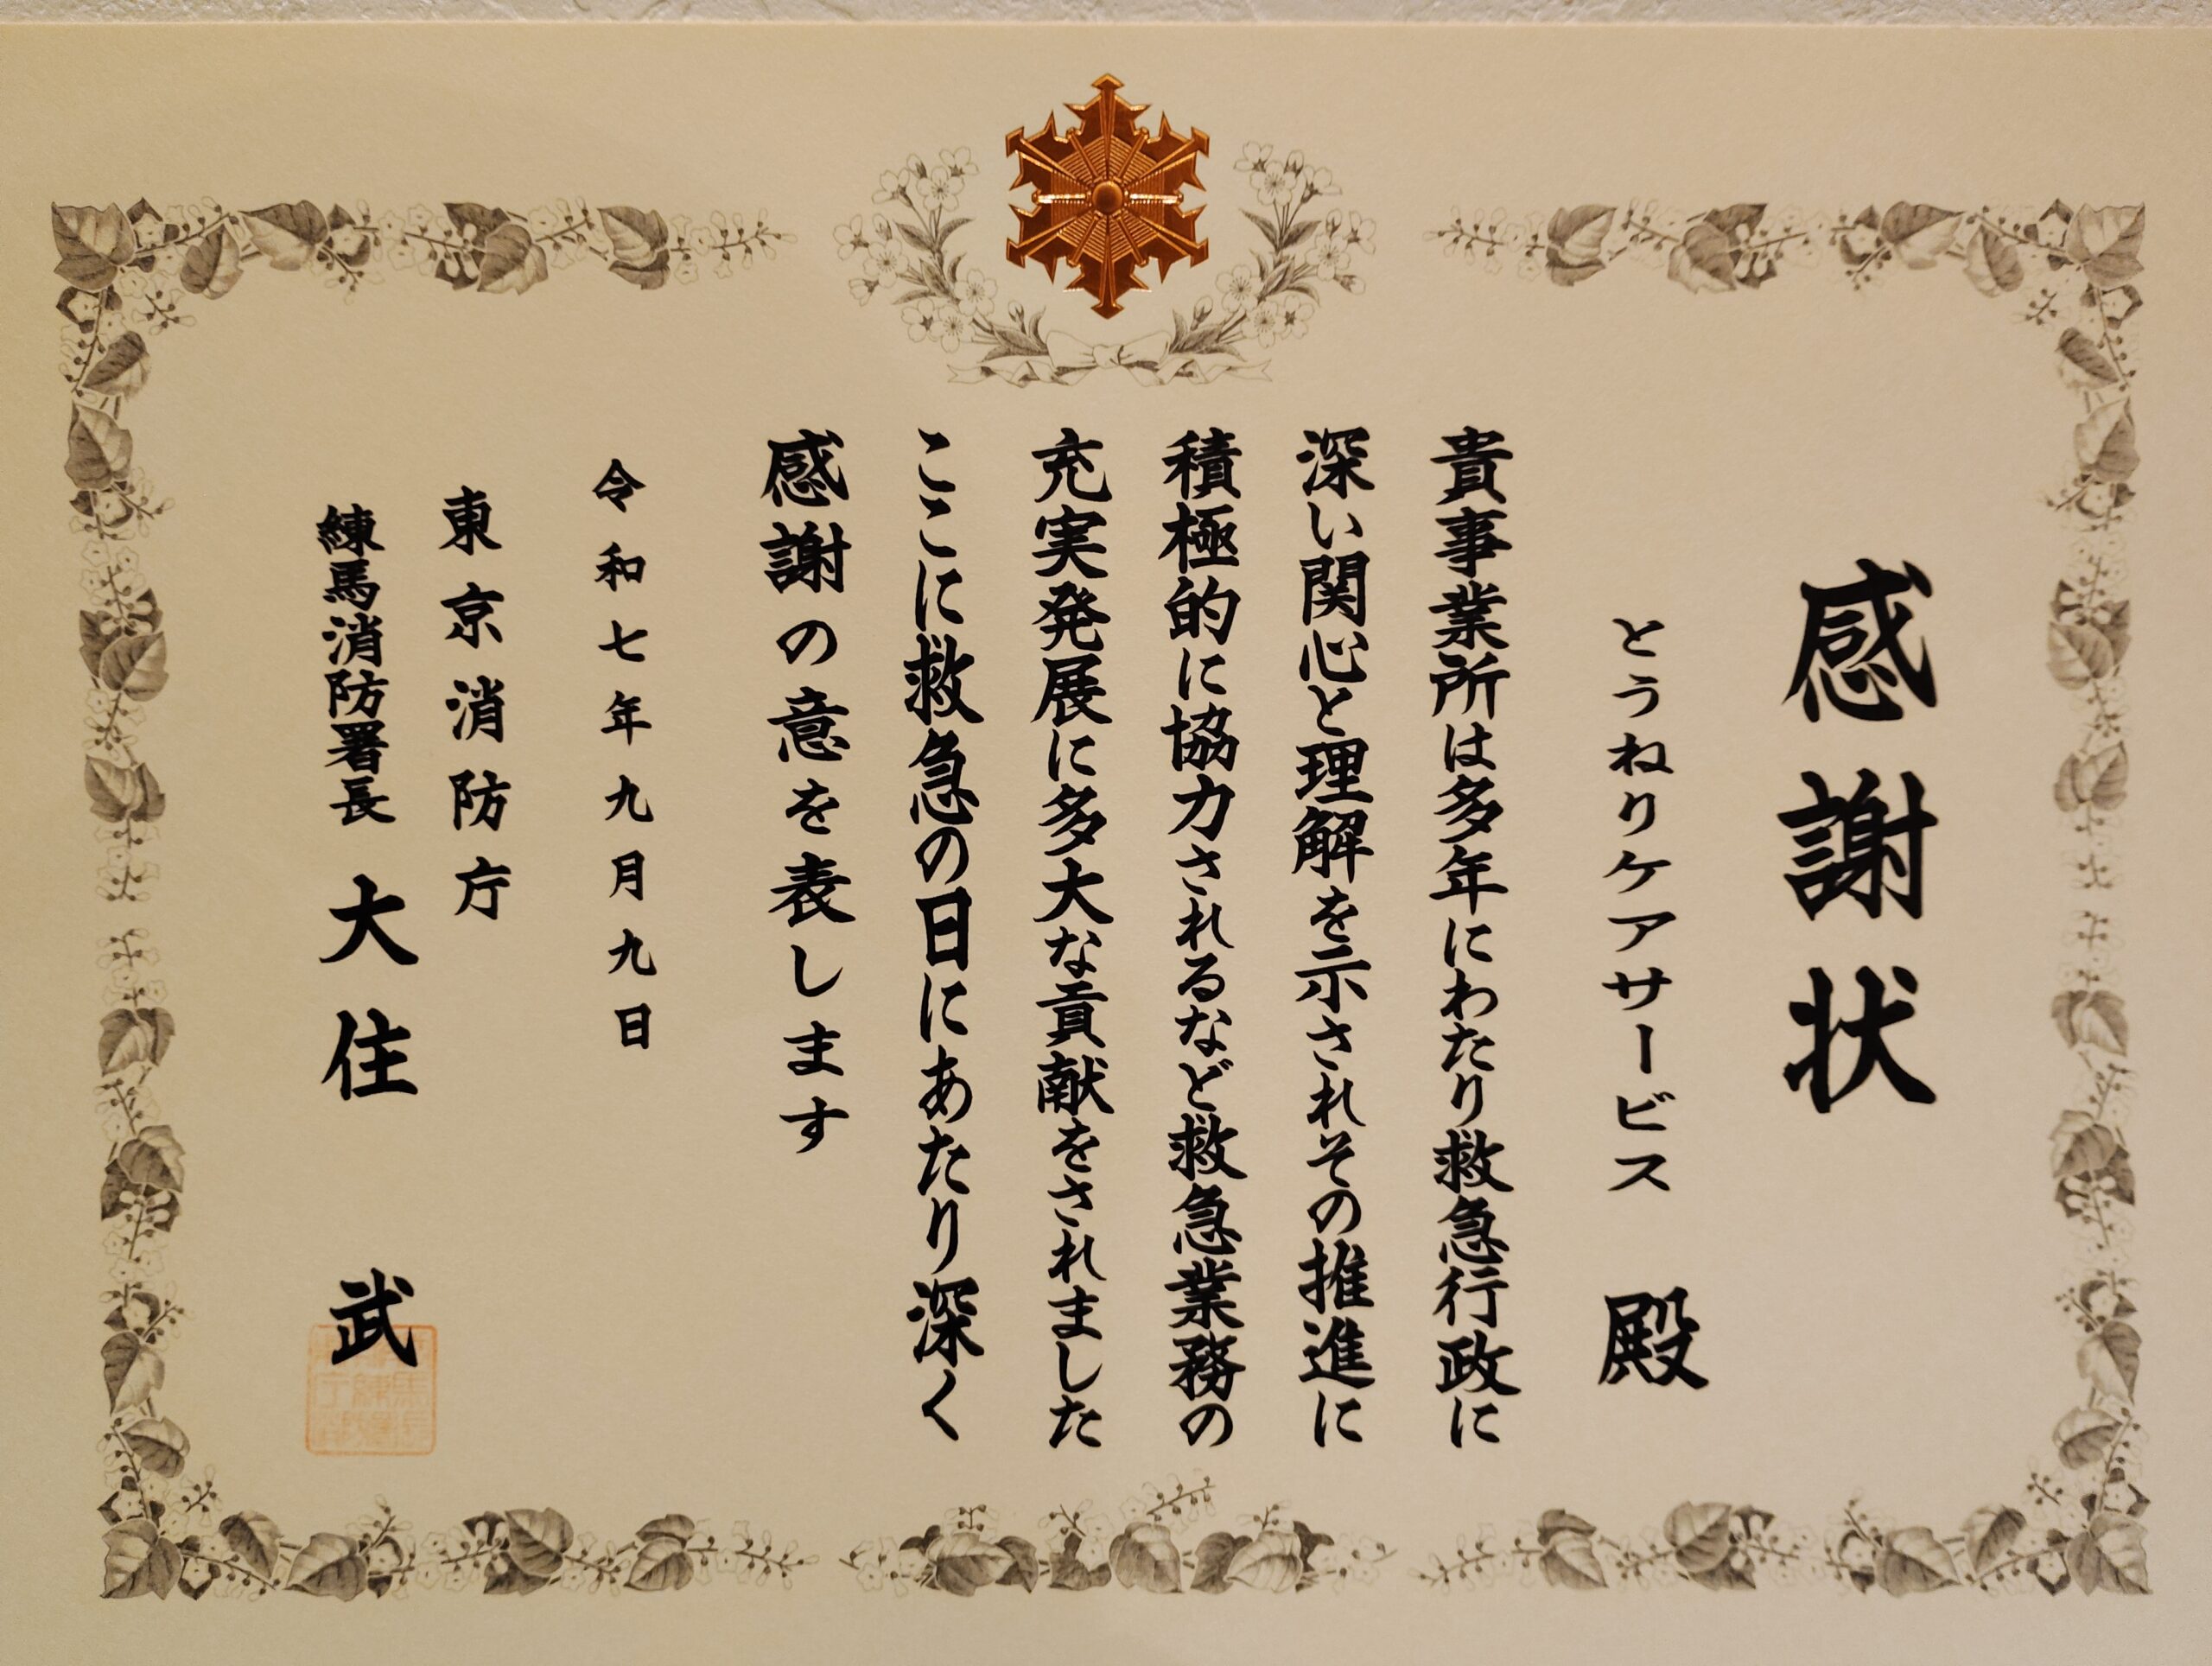 感謝状
とうねりケアサービス 殿
貴事業所は多年にわたり救急行政に
深い関心と理解を示されその推進に
積極的に協力されるなど救急業務の
充実発展に多大な貢献をされました
ここに救急の日にあたり深く
感謝の意を表します
令和七年九月九日
東京消防庁
練馬消防署長 大住 武